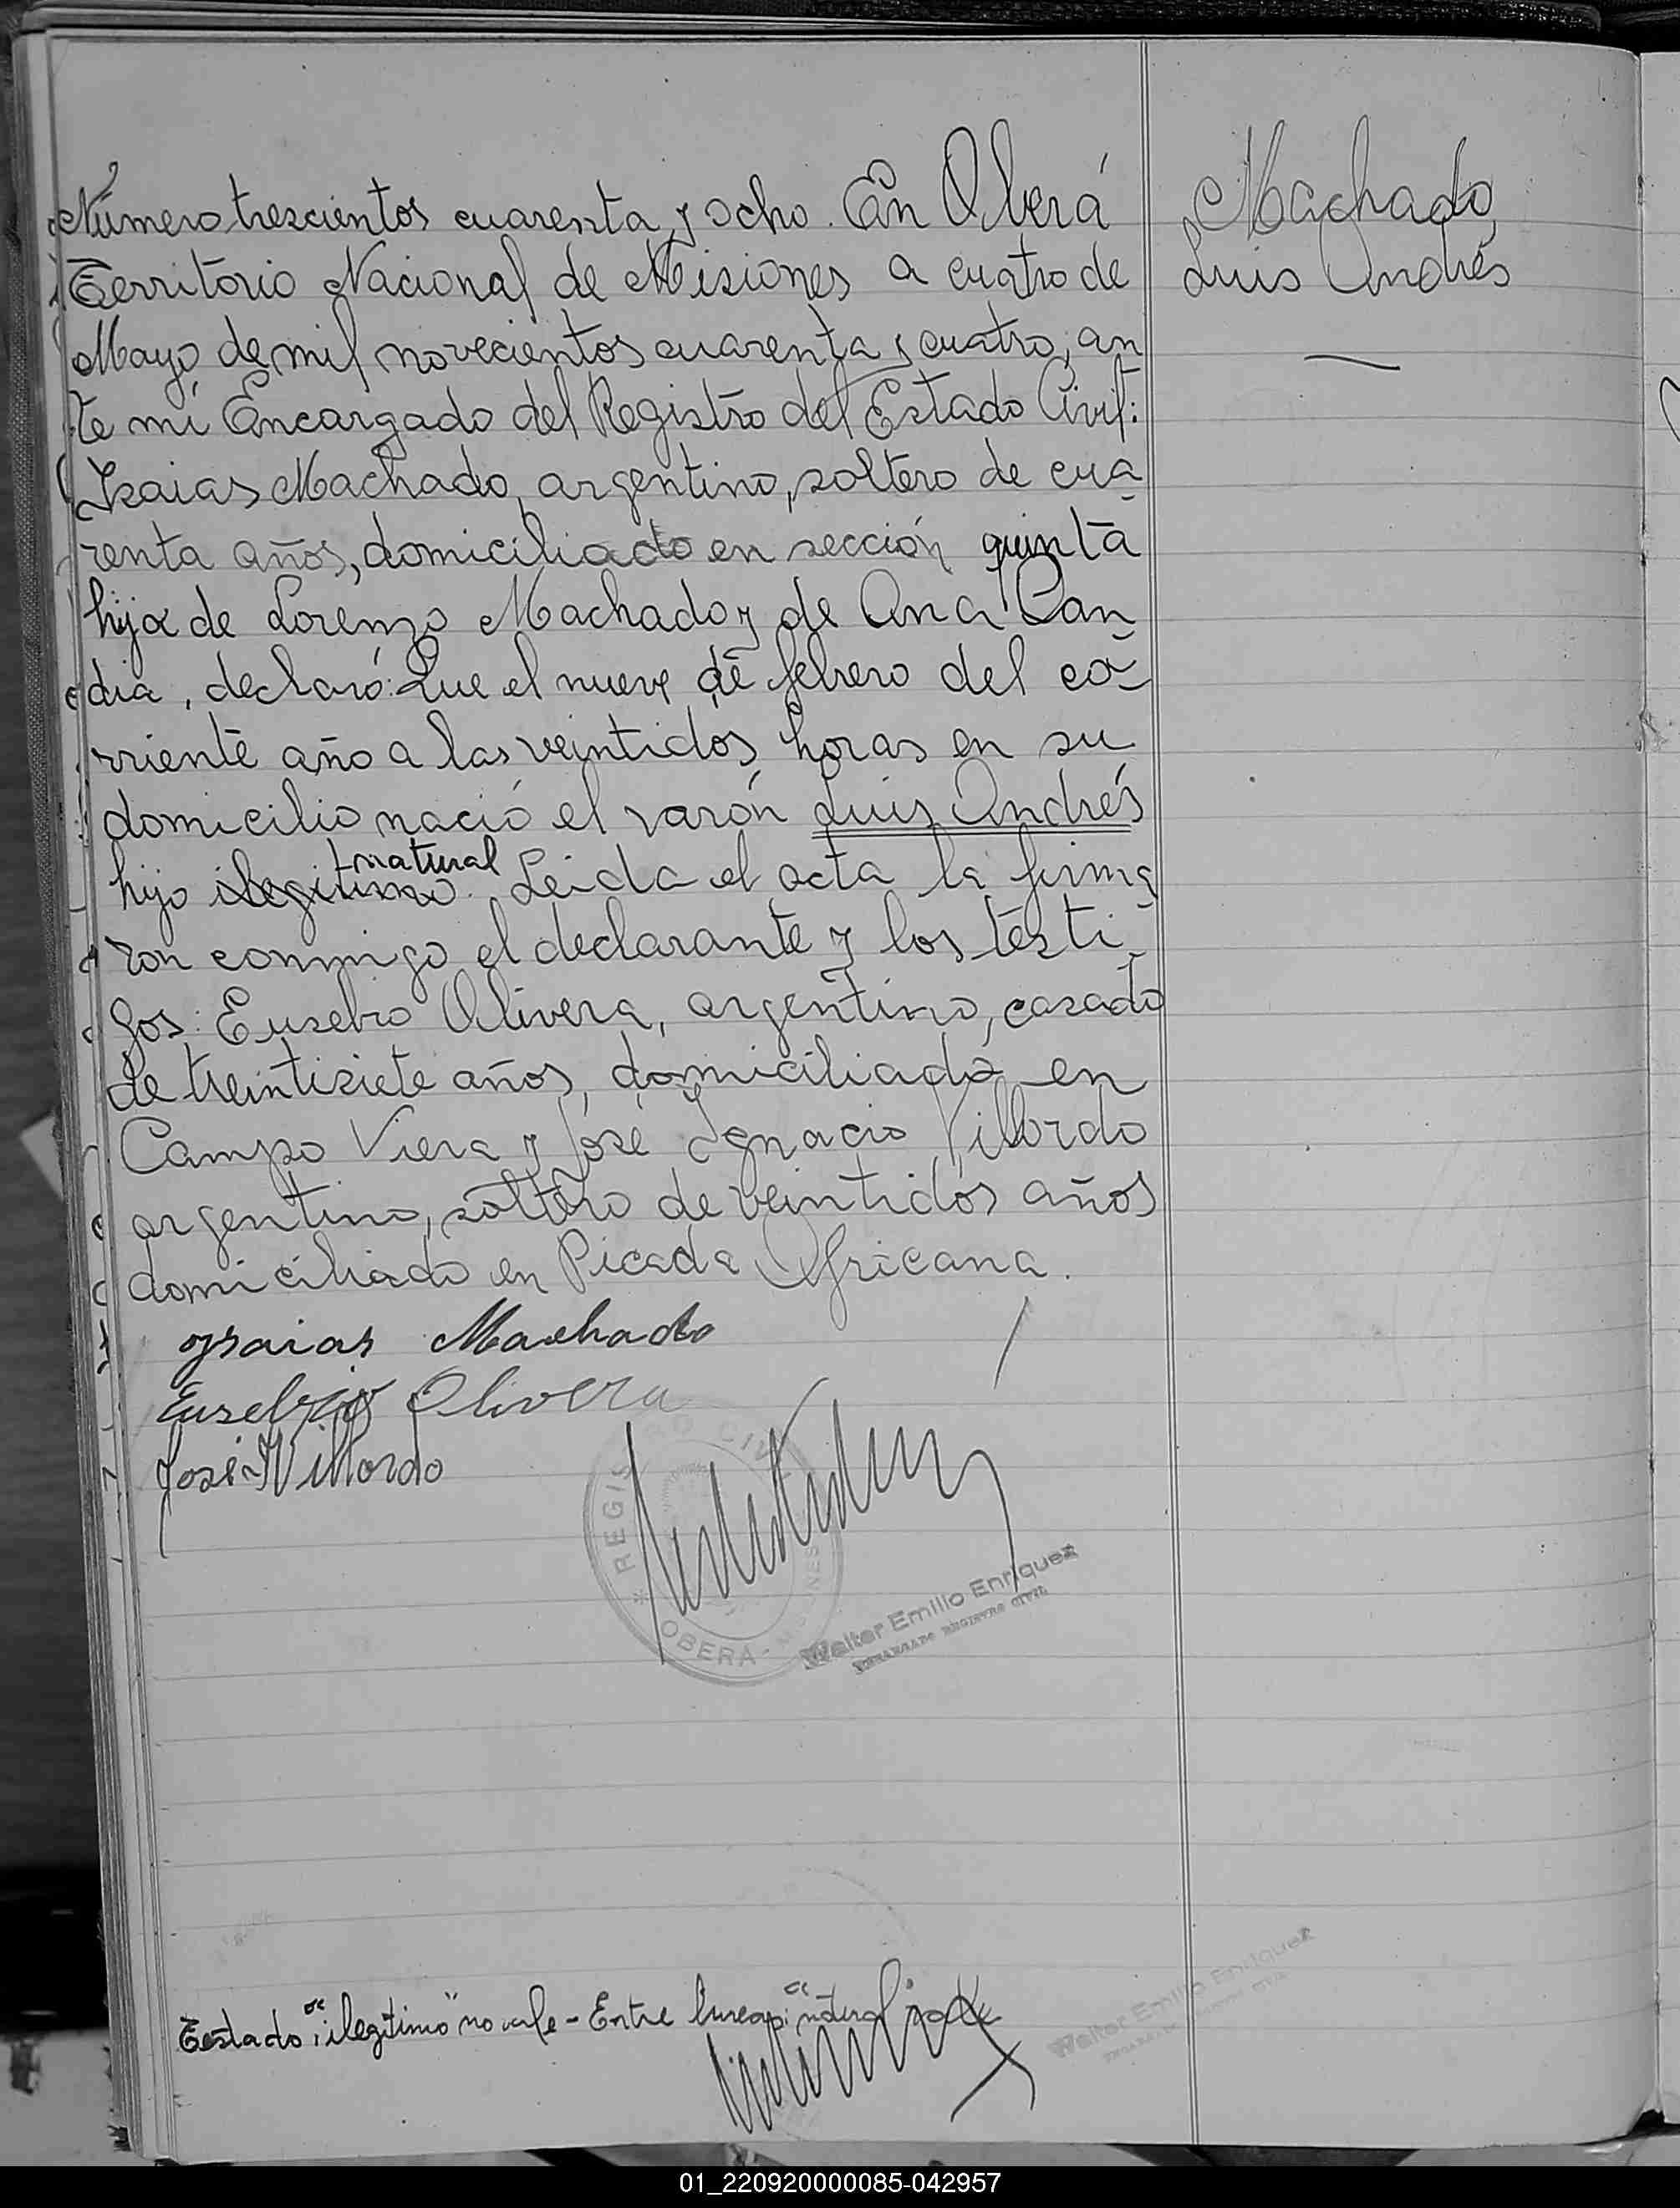 Número trescientos cuarenta y ocho. En Oberá
Territorio Nacional de Misiones a cuatro de
Mayo de mil novecientos cuarenta y cuatro, an
te mí Encargado del Registro del Estado Civil:
Izaias Machado, argentino, soltero de cua
renta años, domiciliado en sección quinta
hijo de Lorenzo Machado y de Ana Can
dia, declaró: Que el nueve de febrero del co-
rriente año a las veintidos horas en su
domicilio nació el varón Luis Andrés
natural
hijo ilegitimo. Leida el acta la firma
ron conmigo el declarante y los testi
gos: Eusebio Olivera, argentino, casado
de treintisiete años, domiciliado en
Campo Viera y José Ignacio Villordo
argentino, soltero de veintidós años
domiciliado en Picada Africana.
Machado
Luis Andrés
Ysaias Machado
Eusebio Olivera
José I Villordo
* REGISTRO CIVIL
OBERÁ - MISIONES
Walter Emilio Enriquez
ENCARGADO REGISTRO CIVIL
Testado: "ilegitimo" no vale - Entre lineas: "natural" vale
Walter Emilio Enriquez
01_220920000085-042957